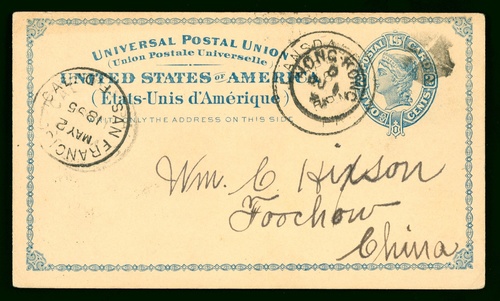 UNIVERSAL POSTAL UNION
(Union Postale Universelle)
UNITED STATES OF AMERICA
(États-Unis d'Amérique)
ONLY THE ADDRESS ON THIS SIDE
POSTAL CARD
TWO CENTS
HONG KONG
SAN FRANCISCO
MAY 2
1895
Wm. C. Hixson
Foochow
China